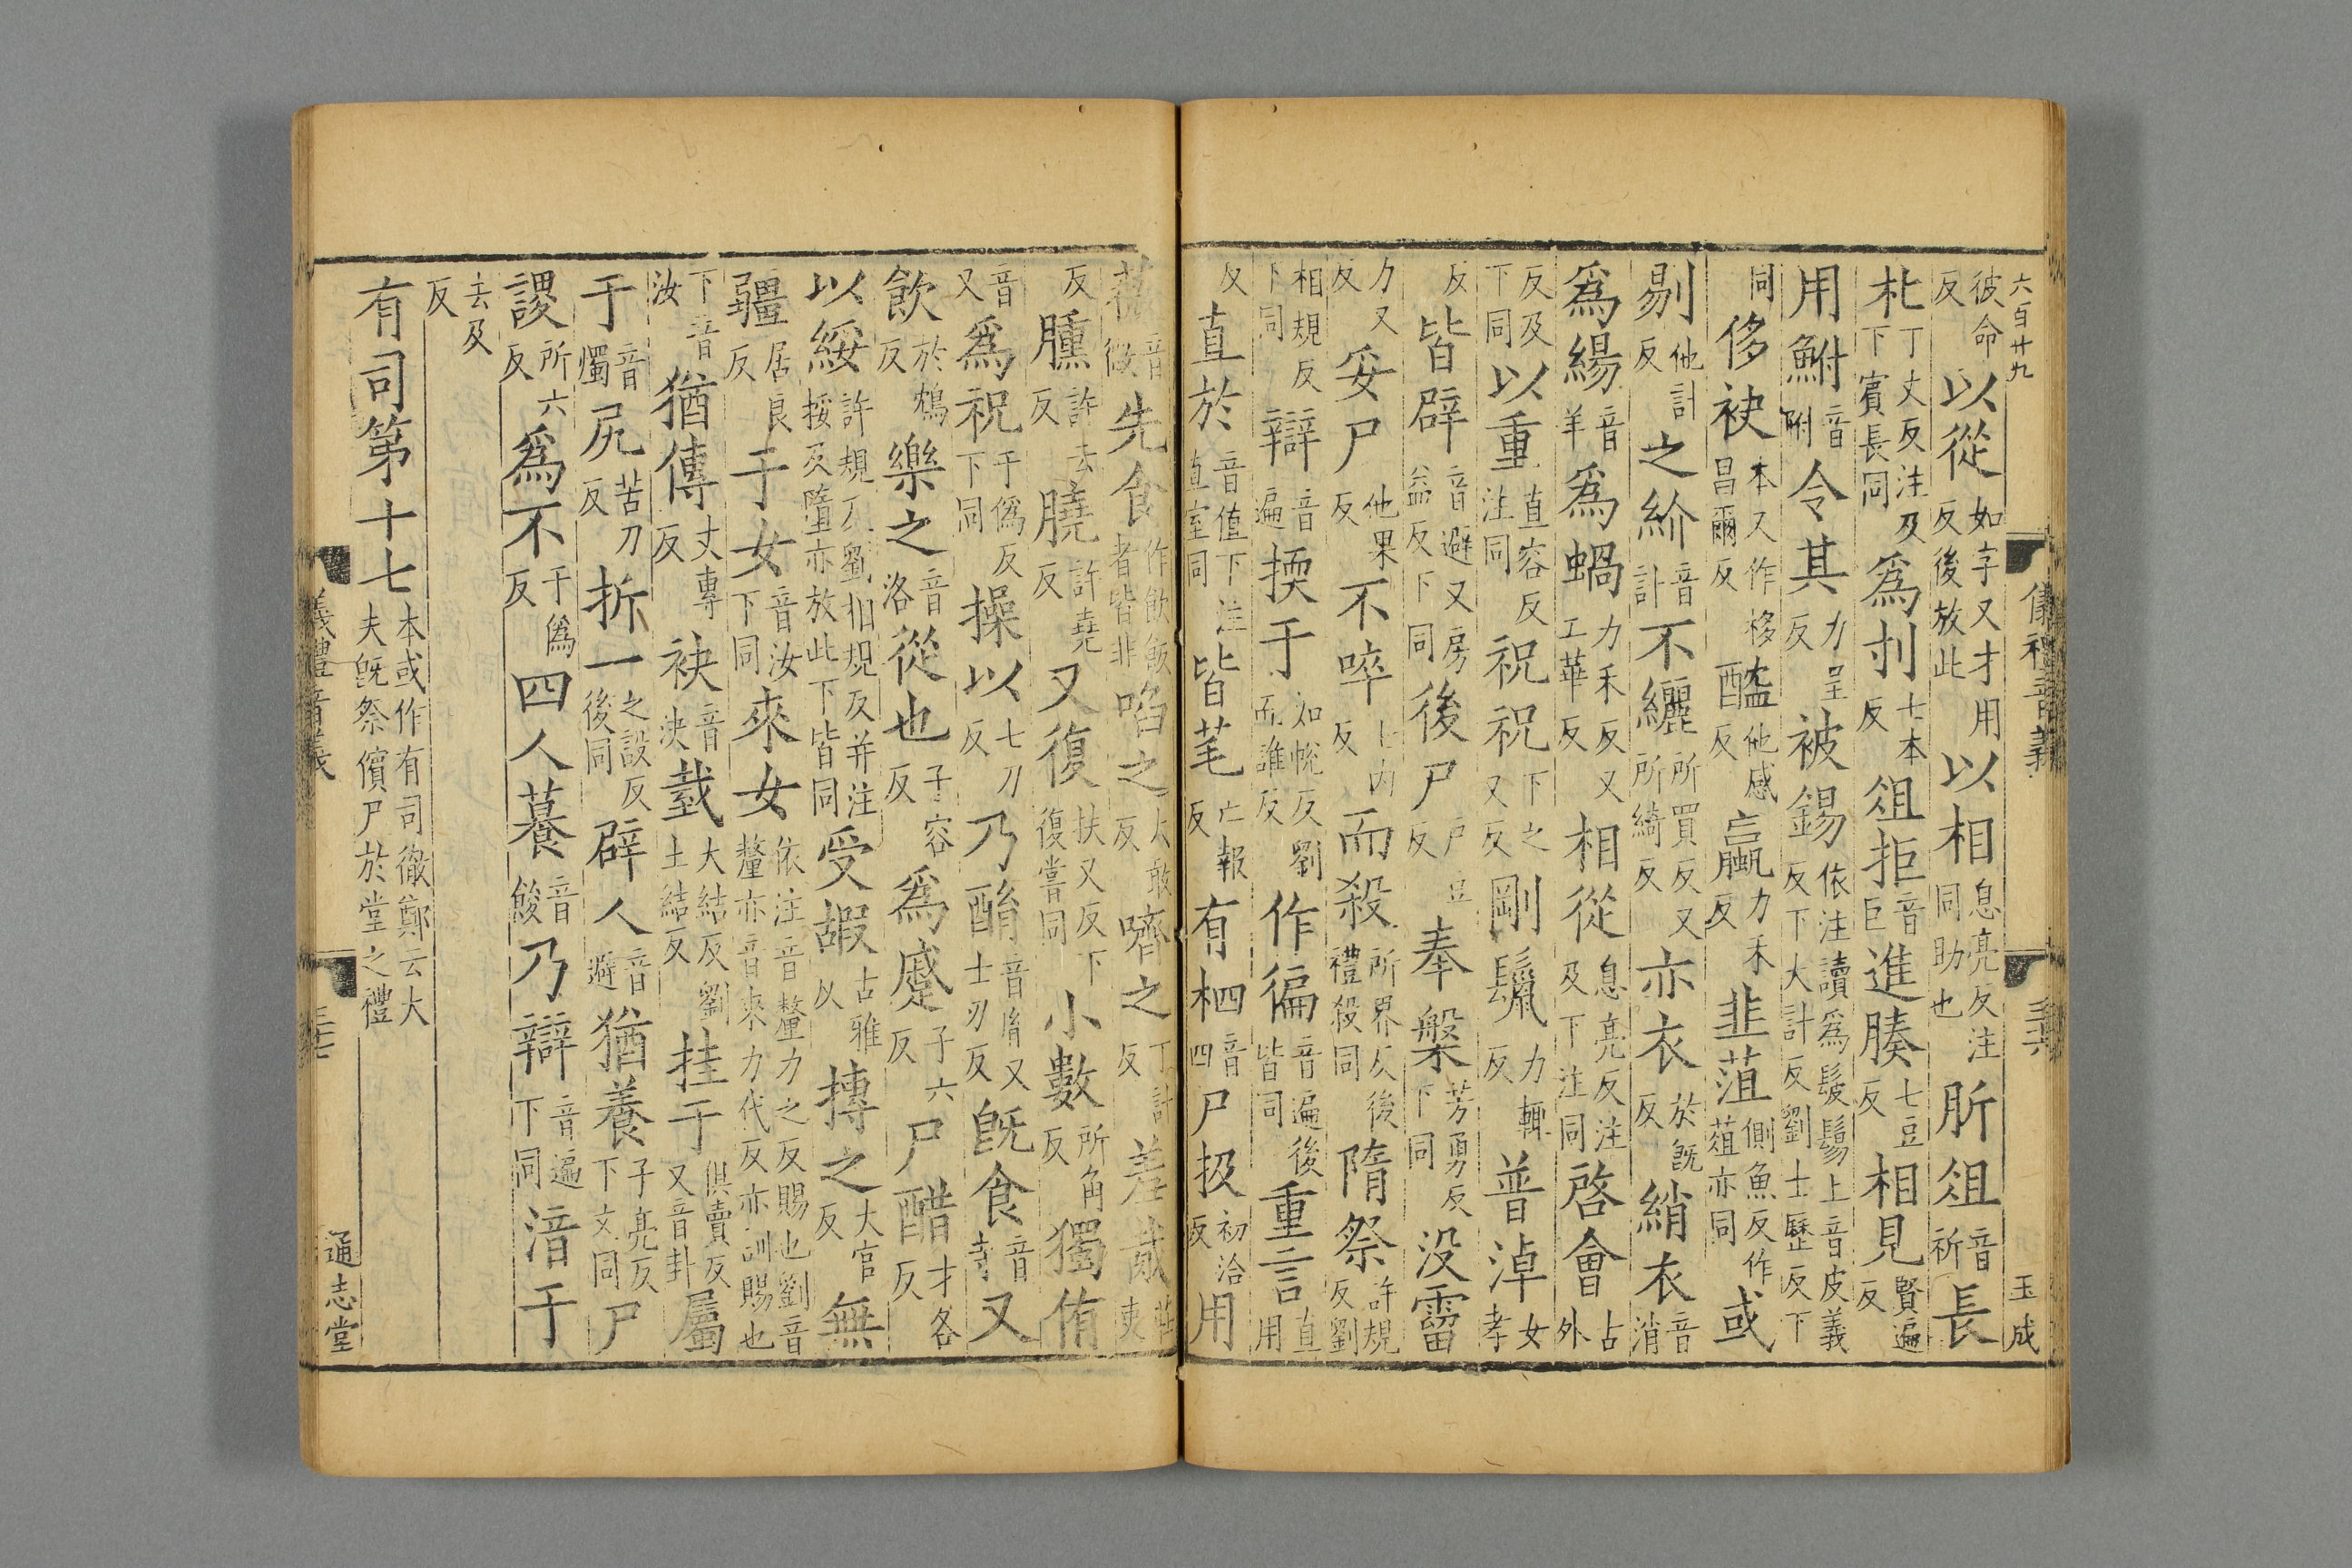 六百廿九
儀禮音義
三十六
玉成
彼命反以從如字又才用反後放此以相息亮反注同助也肵俎音祈長
朼丁丈反注及下賓長同爲刌七本反俎拒音巨進腠七豆反相見賢遍反
用鮒音附令其力呈反被錫依注讀爲髲鬄上音皮義反下大計反劉士歷反下
同侈袂本又作移昌爾反醓他感反蠃力禾反韭菹側魚反作葅亦同或
剔他計反之紒音計不纚所買反又所綺反亦衣於旣反綃衣音消
爲緆音羊爲蝸力禾反又工華反相從息亮反注及下注同啓會古外
反及下同以重直容反注同祝祝下之又反剛鬛力輒反普淖女孝
反皆辟音避又房益反下同後尸戶豆反奉槃芳勇反下同没霤
力又反妥尸他果反不啐七內反而殺所界反後禮殺同隋祭許規反劉
相規反下同辯音遍擩于如帨反劉而誰反作徧音遍後皆同重言直用
反直於音值下注直室同皆芼亡報反有柶音四尸扱初洽反用
薇音微先食作飮飯者皆非啗之大敢反嚌之丁計反羞胾莊吏
反臐許云反膮許堯反又復扶又反下復嘗同小數所角反獨侑
音又爲祝于僞反下同操以七刀反乃酳音胤又士刃反旣食音寺又
飲於鴆反樂之音洛從也子容反爲蹙子六反尸醋才各反
以綏許規反劉相規反并注挼反墮亦放此下皆同受嘏古雅反摶之大官反無
疆居良反于女音汝下同來女依注音釐力之反賜也劉音釐亦音來力代反亦訓賜也
下音汝猶傳丈專反袂音決臷大結反劉土結反挂于俱賣反又音卦屬
于音燭尻苦刀反折一之設反後同辟人音避猶養子亮反下文同尸
謖所六反爲不于僞反四人䊕音餕乃辯音遍下同湆于
去及反
有司第十七本或作有司徹鄭云大夫旣祭儐尸於堂之禮
義禮音義
三十七
通志堂